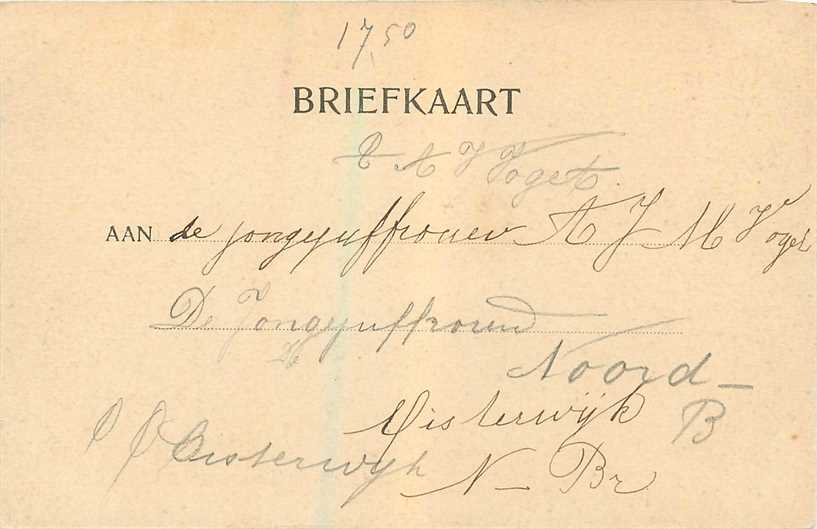 17,50
BRIEFKAART
A J Voget
AAN de jongejuffrouw A J M Voget
De Jongejuffrouw
Noord-
B
Oisterwijk
Oisterwijk
N - Br